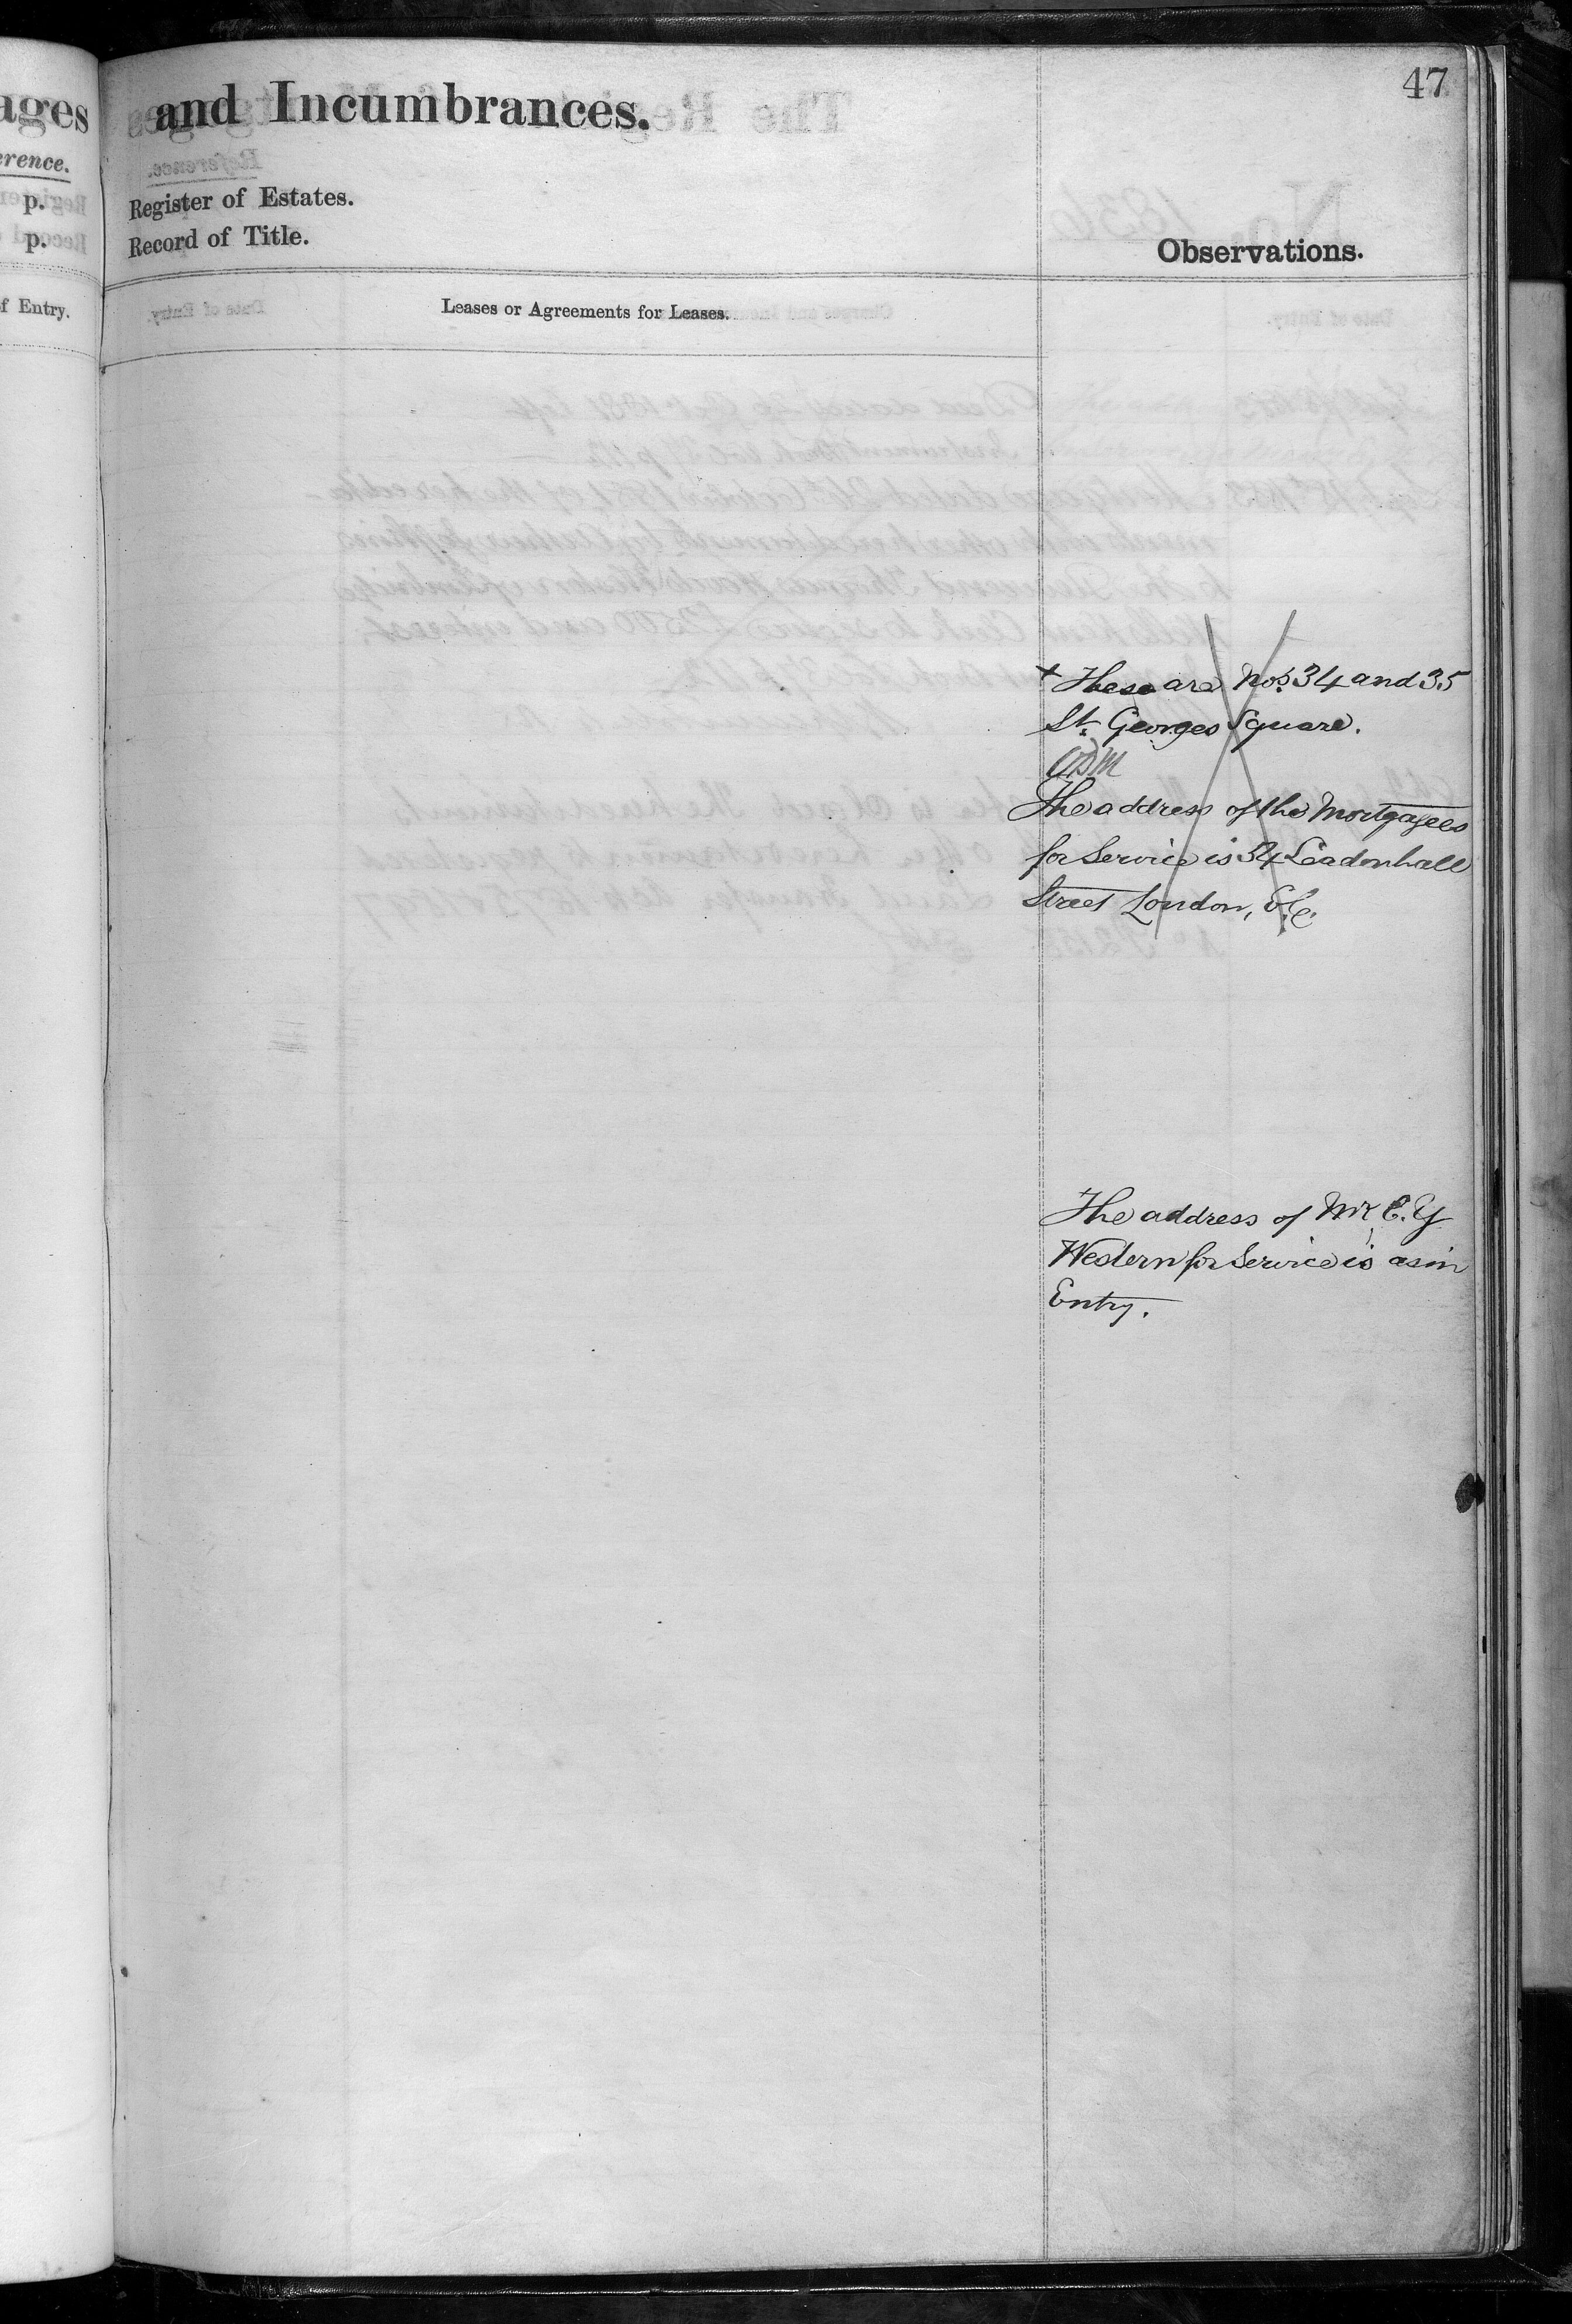 47
ages
and Incumbrances.
erence.
p.
Register of Estates.
p.
Record of Title.
Observations.
f Entry.
Leases or Agreements for Leases.
+ These are Nos. 34 and 35
St. Georges Square.
The address of the Mortgagees
for Service is 34 Leadenhall
Street London, E.C.
The address of Mr. E. G
Western for Service is as in
Entry.